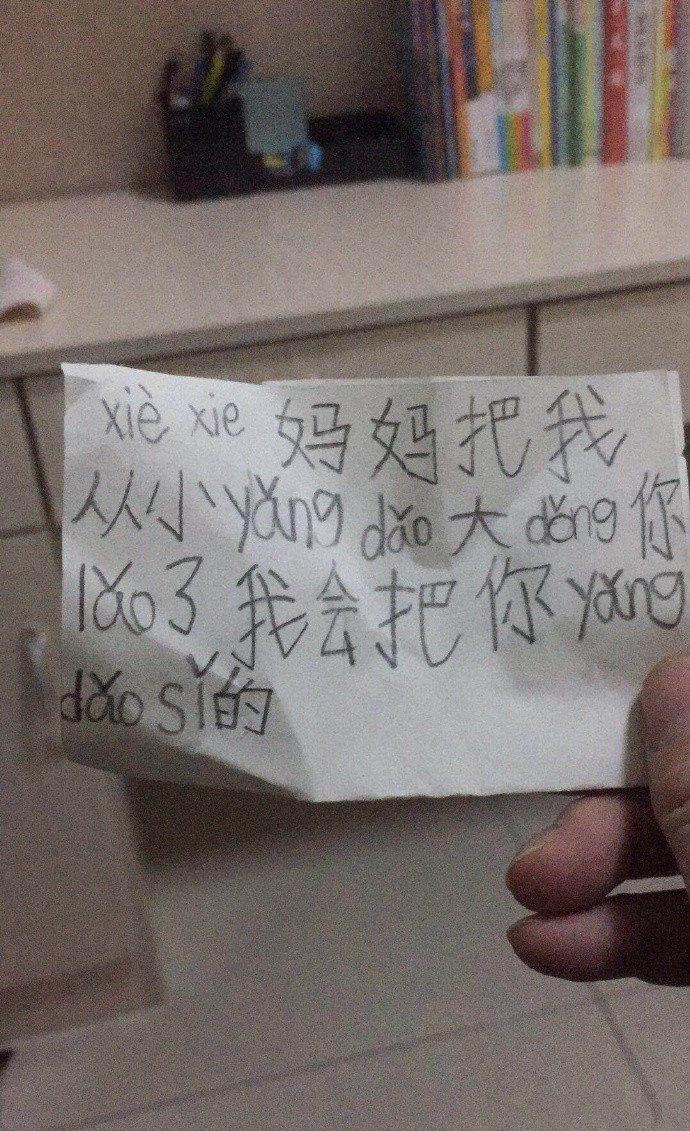 xiè xie 妈妈把我
从小yǎng dǎo大děng你
lǎo了我会把你yǎng
dǎo sǐ的